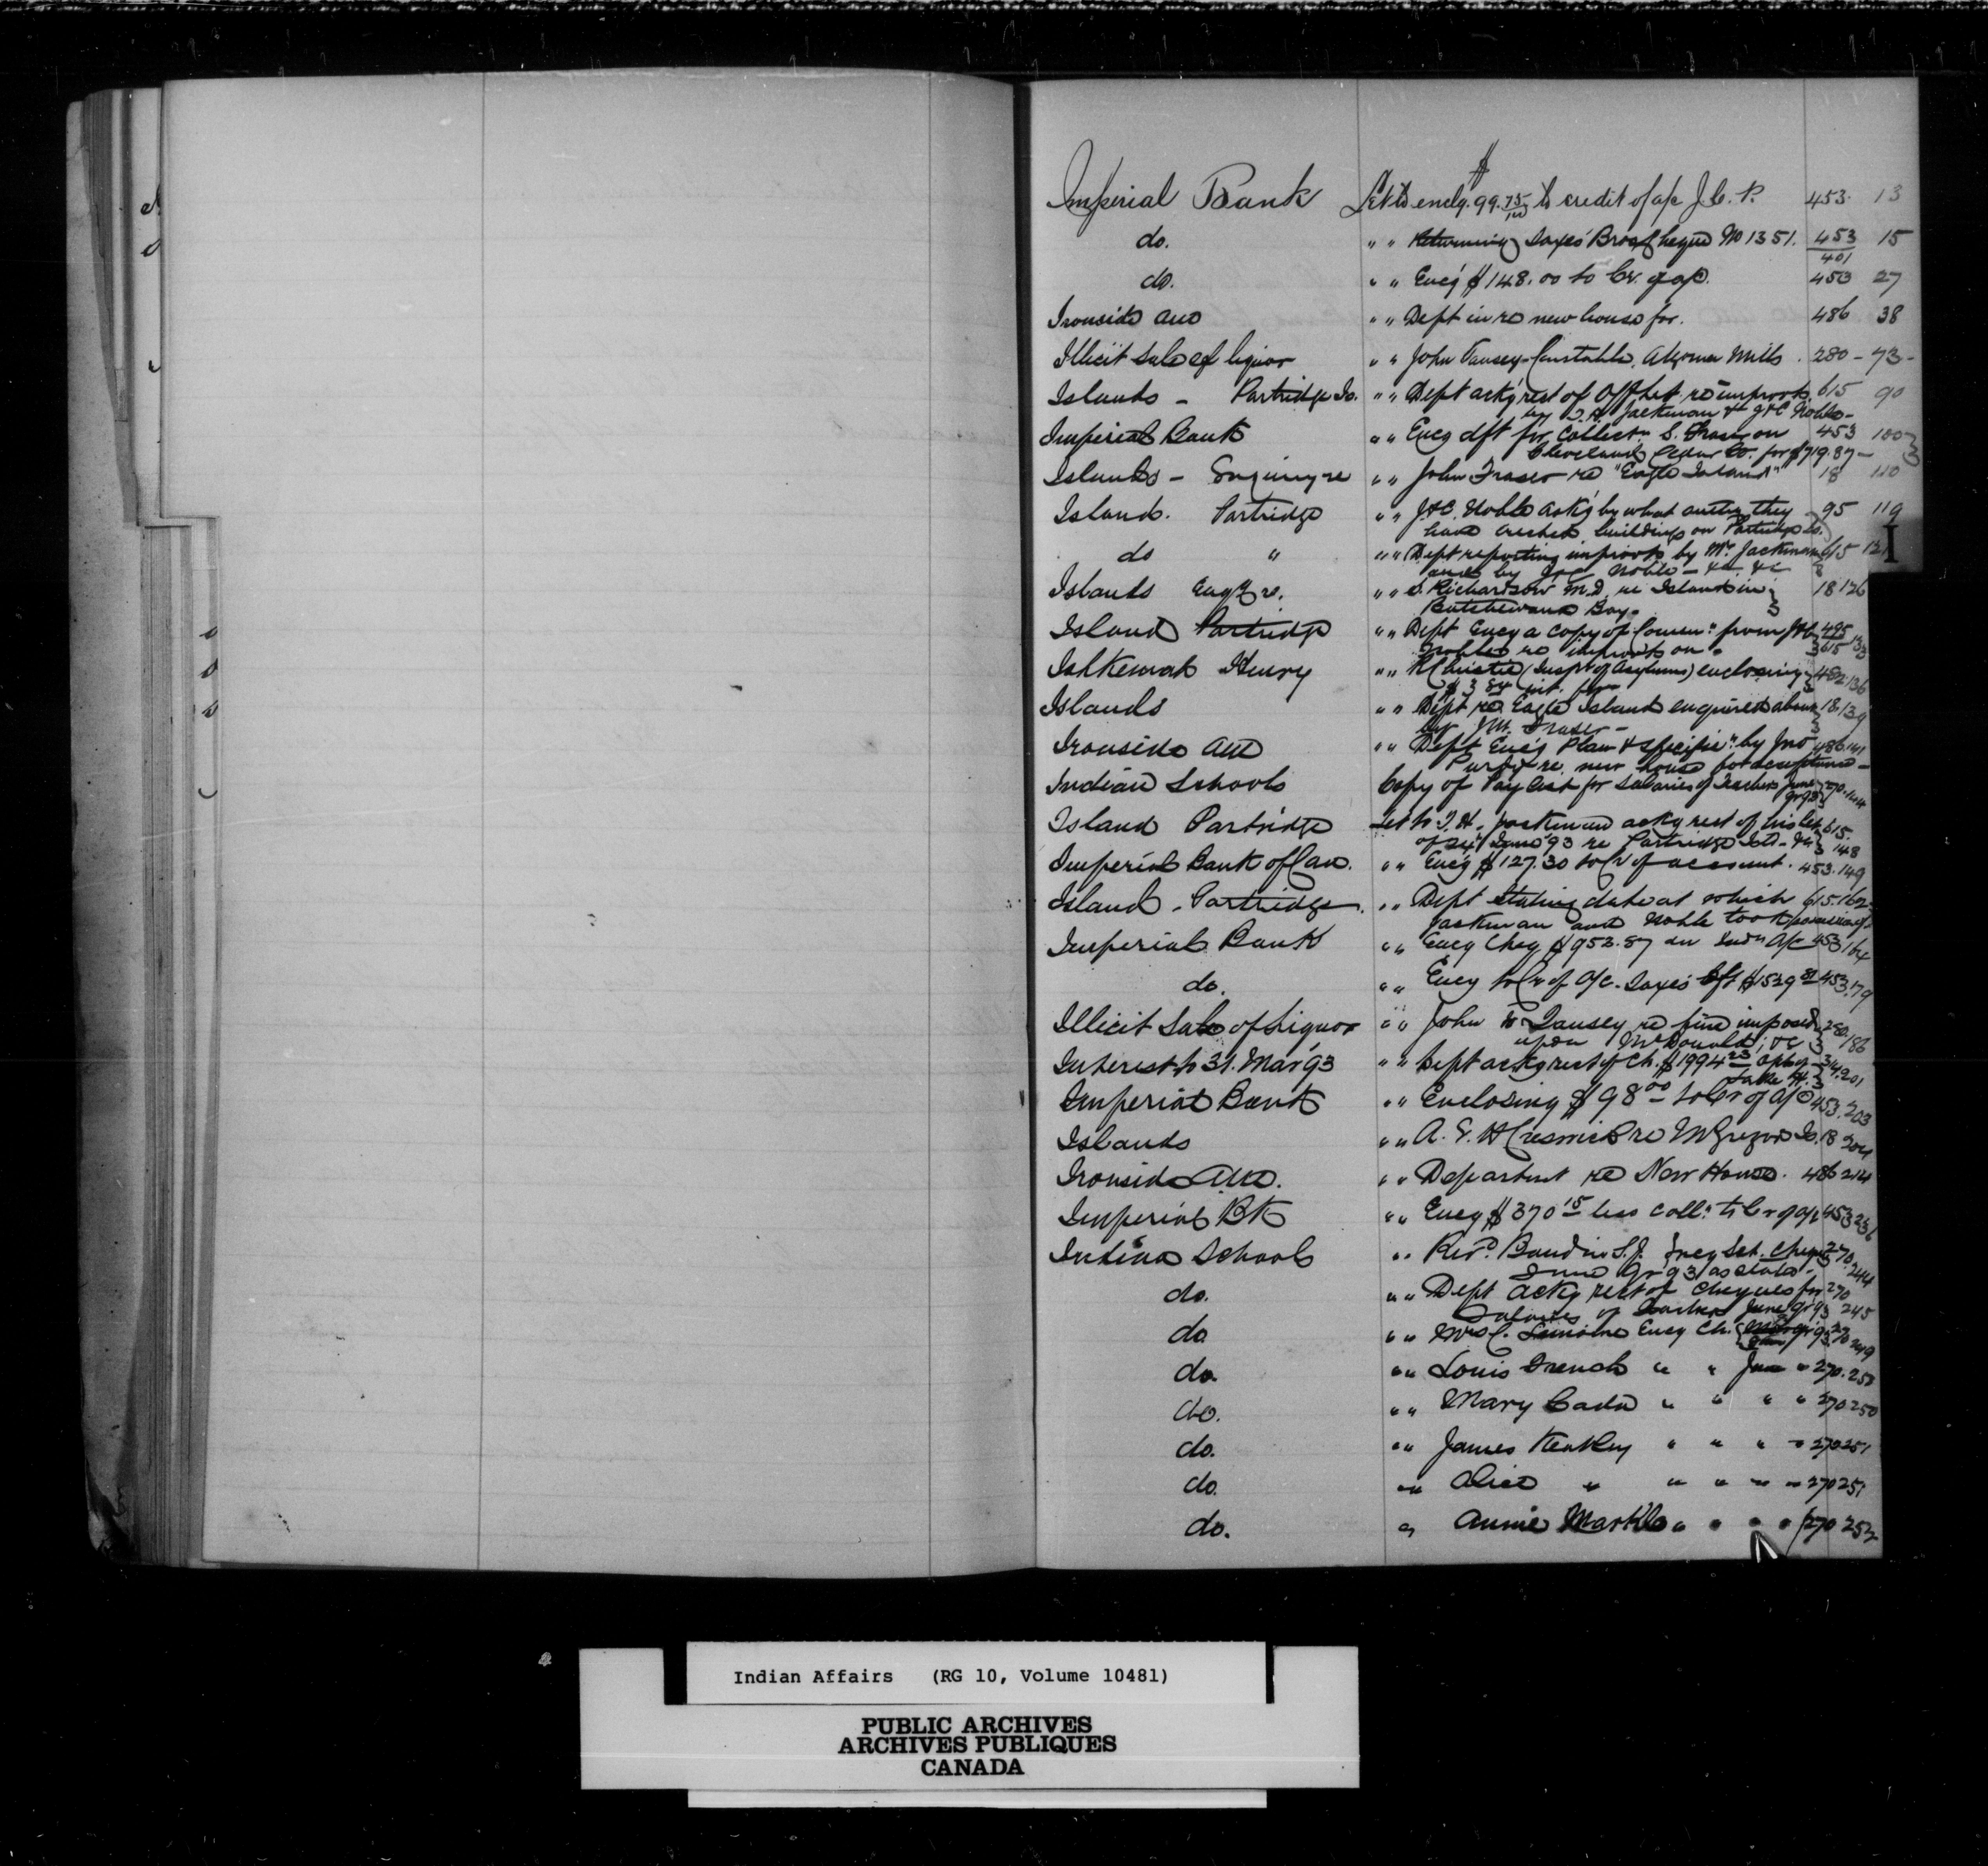 Imperial Bank Let to enclg. $99.75/100 to credit of a/c J.C.P. 453. 13
do. " " Returning Saxe's Bros Cheque No 1351. 453/401 15
do. " " Encg $148.00 to Cr. of a/c. 453 27
Ironside Ave " " Dept in re new house for. 486 38
Illicit Sale of liquor " " John Constable, Algoma Mills. 280 - 73 -
Islands - Partridge Is. " " Dept ackg rect of Off let re improvts. 615 90
by T.H. Jackman & J&C Noble -
Imperial Bank " " Encg dft for Collectn S. on 453 100
Cleveland Cedar Co. for $719.87 -
Islands - Enquiry re " " John Fraser re "Eagle Island" 18 110
Island. Partridge " " J&C. Noble askg by what authy they 95 119
have erected buildings on Partridge Is.
I
do " " " Dept reporting improvts by Mr. Jackman 615 121
and by J&C Noble - &c &c
Islands Enqy re. " " S. Richardson M.D. re Island in 18 126
Batchewana Bay.
Island Partridge " " Dept Encg a copy of Comcn from J&C 495
Nobles re improvts on " 615 133
Henry " " R Christie (Inspr of Asylums) enclosing 482 136
$3 int. for
Islands " " Dept re Eagle Island enquired about 18. 139
by Jn. Fraser -
Ironside Ave " " Dept Encg Plan & specificn by Jno 486 141
Purvis re new house for acceptance -
Indian Schools Copy of Pay List for Salaries of Teachers June 270. 144
Qr 93
Island Partridge Let to T.H. Jackman ackg rect of his let 615.
of June '93 re Partridge Isld - &c 148
Imperial Bank of Can. " " Encg $127.30 to Cr of account. 453. 149
Island - Partridge. " " Dept stating date at which 615. 162
Jackman and Noble took possession of
Imperial Bank " " Encg Cheq $952.87 on Indn A/c 453 164
do. " " Encg to Cr of a/c. Saxe's dft $1529 453. 179
Illicit Sale of Liquor " " John re fine imposed 280. 186
upon McDonald, &c
Interest to 31. Mar '93 " " Dept ackg rect of Ch. $1994 314. 201
Lake H.
Imperial Bank " " Enclosing $98.00 to Cr of a/c 453. 203
Islands " " A. E. re McGregor Is. 18 204
Ironside Ave. " " Department re New House. 486 214
Imperial Bk " " Encg $370.15 less colln to Cr of a/c 453 236
Indian Schools " " Revd. Baudin S.J. Encg Set. Cheques 270. 244
June Qr 93 as stated -
do. " " Dept ackg rect of Cheques for 270
Salaries of Teachers June Qr 93 245
do. " " Mrs C. Lamoine Encg Ch. Qr 93 270 249
do. " " Louis French " " June " 270. 250
do. " " Mary Cada " " " " 270 250
do. " " James Keatley " " " " 270 251
do. " " Alice " " " " " 270 251
do. " Annie Markle " " " " 270 252
Indian Affairs (RG 10, Volume 10481)
PUBLIC ARCHIVES
ARCHIVES PUBLIQUES
CANADA